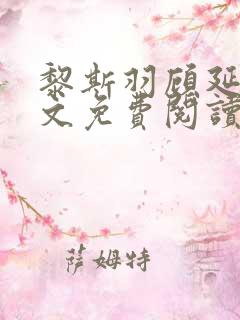 黎斯羽顾延
文免費閱讀
萨姆特